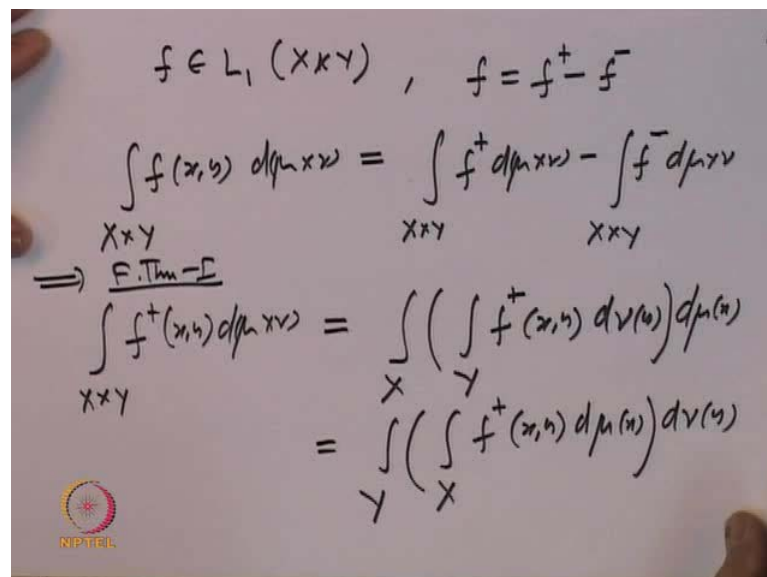 f ∈ L₁ (X×Y) , f = f⁺ - f⁻
∫_{X×Y} f(x,y) d(μ×ν) = ∫_{X×Y} f⁺ d(μ×ν) - ∫_{X×Y} f⁻ dμ×ν
⇒ F.Thm-I
∫_{X×Y} f⁺(x,y) d(μ×ν) = ∫_X ( ∫_Y f⁺(x,y) dν(y) ) dμ(x)
= ∫_Y ( ∫_X f⁺(x,y) dμ(x) ) dν(y)
NPTEL